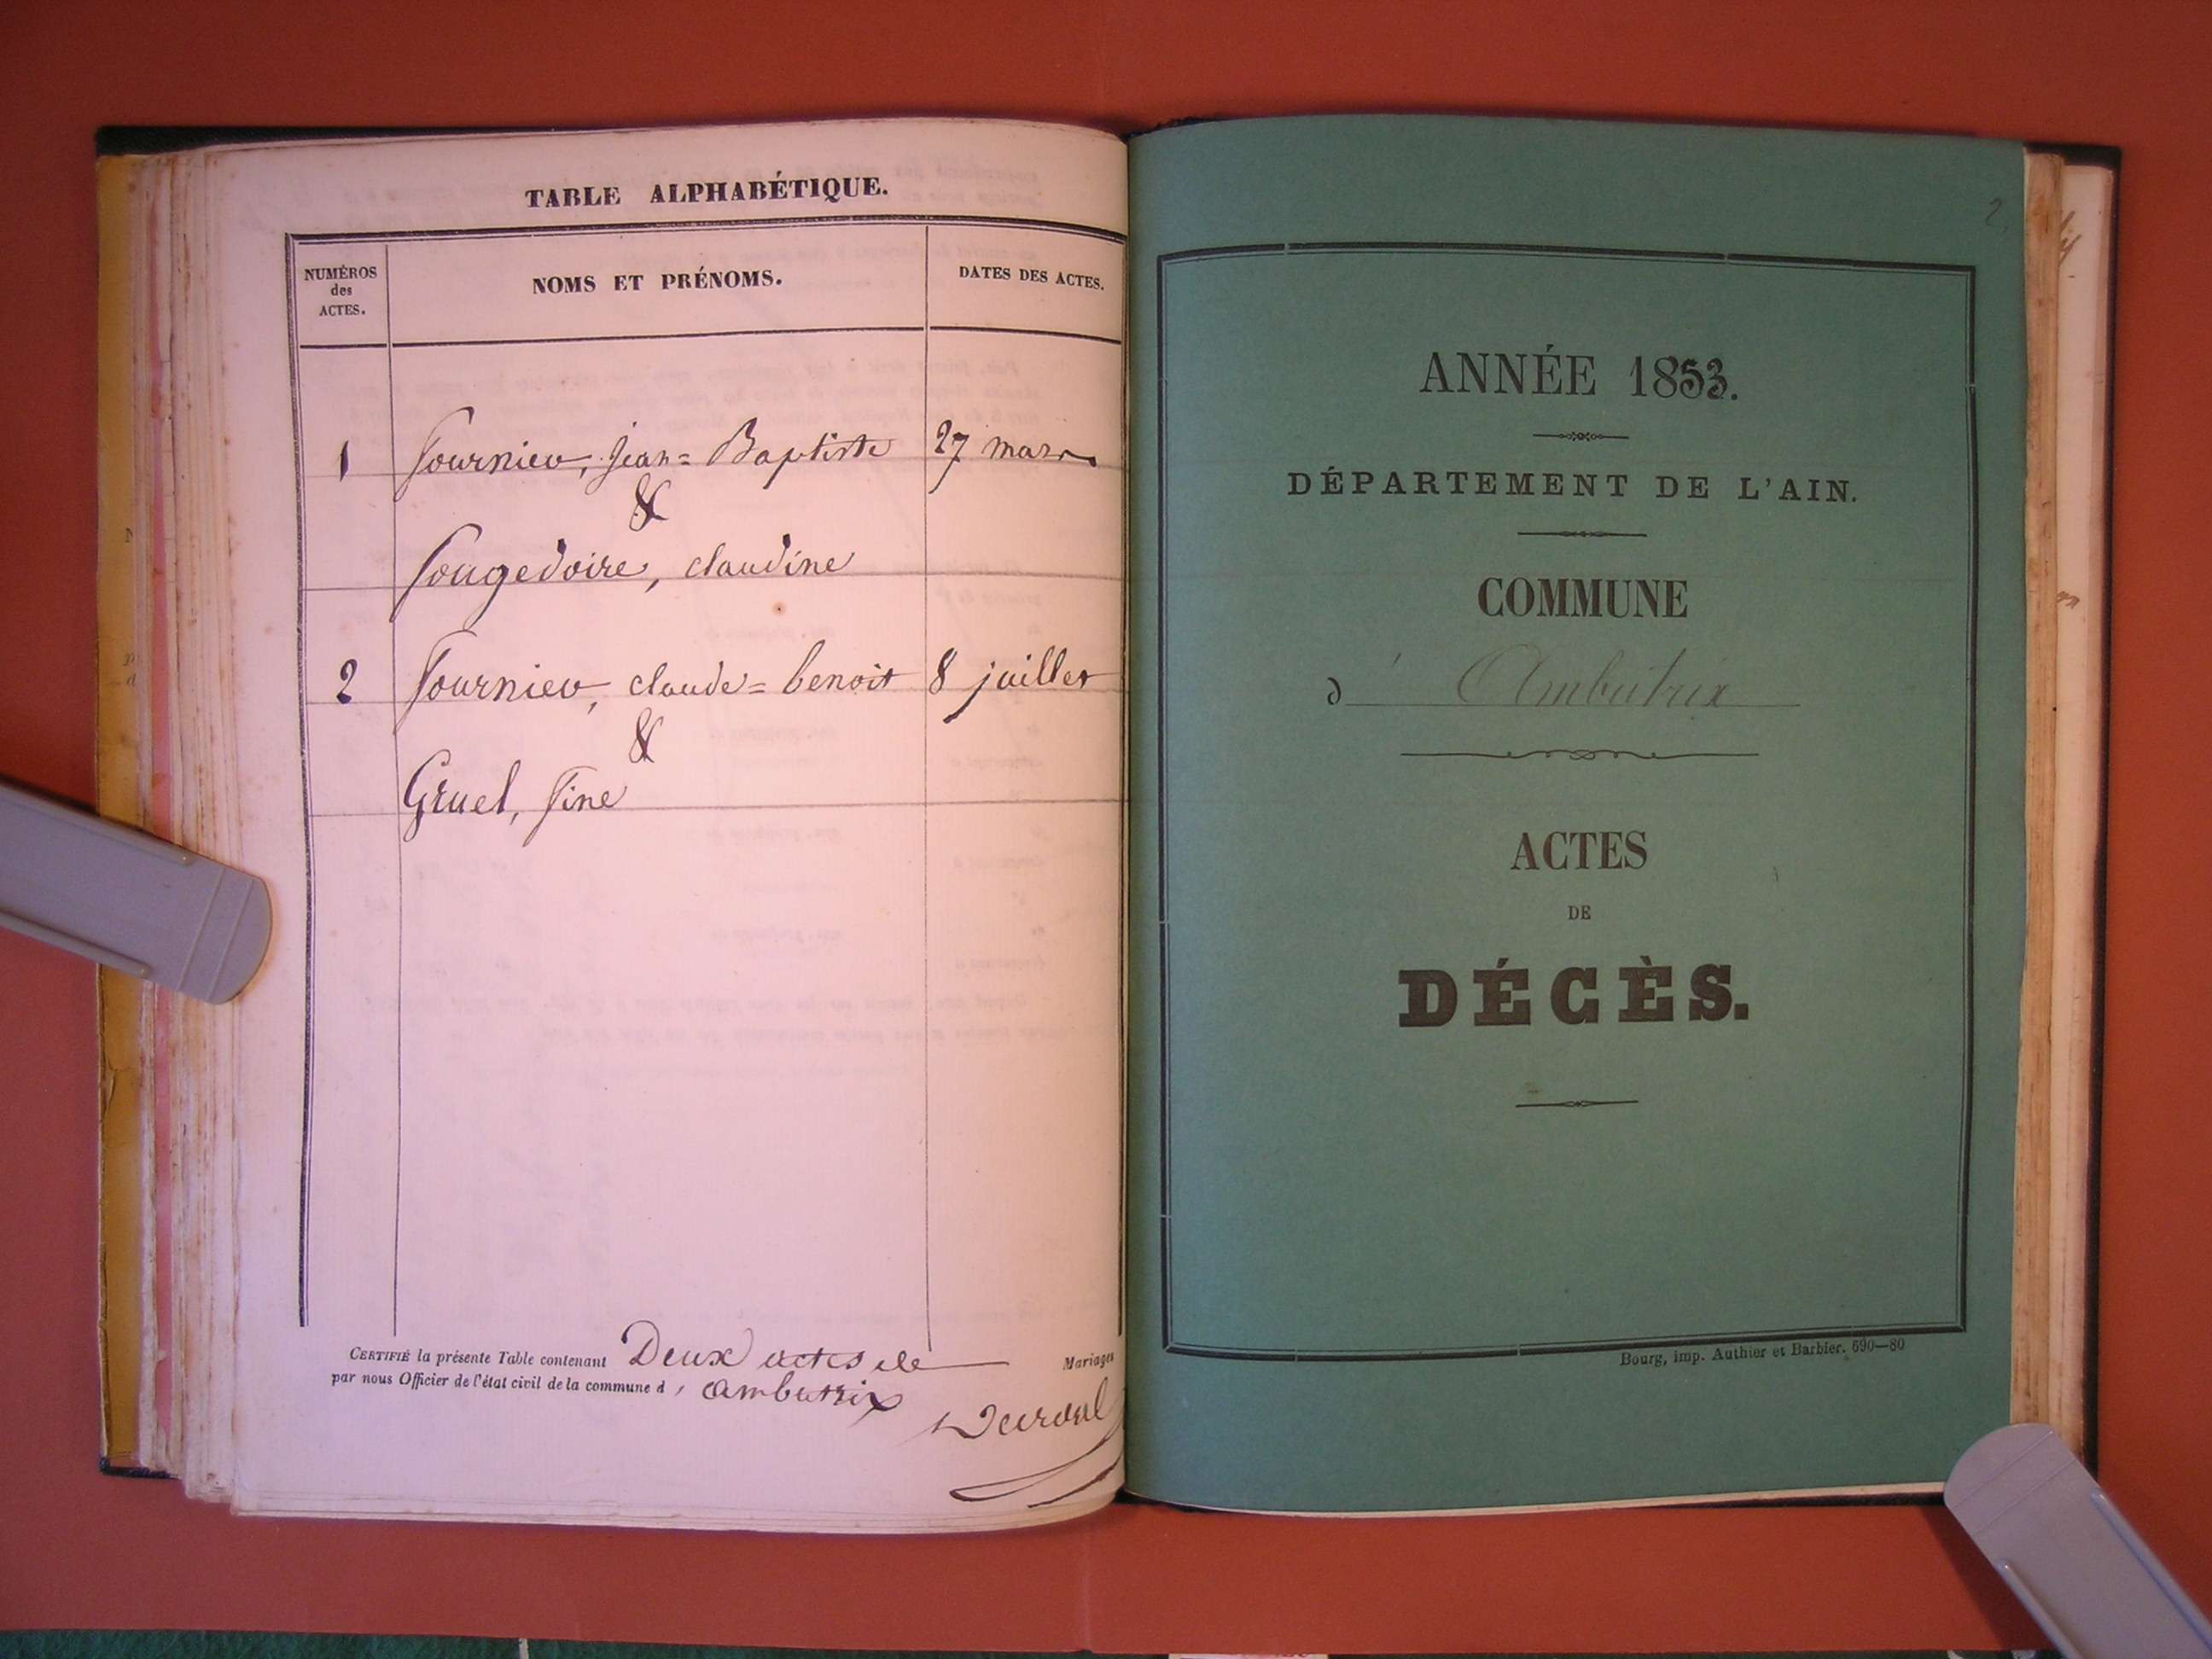 TABLE ALPHABÉTIQUE.
NUMÉROS
des
ACTES.
NOMS ET PRÉNOMS.
DATES DES ACTES.
1 Fournier, Jean=Baptiste 27 mars
&
Fougedoire, claudine
2 Fournier, claude=benoit 8 juillet
&
Gruel, Fine
CERTIFIÉ la présente Table contenant Deux actes de Mariages
par nous Officier de l'état civil de la commune d'ambutrix
ANNÉE 1853.
DÉPARTEMENT DE L'AIN.
COMMUNE
d'Ambutrix
ACTES
DE
DÉCÈS.
Bourg, imp. Authier et Barbier. 690—80